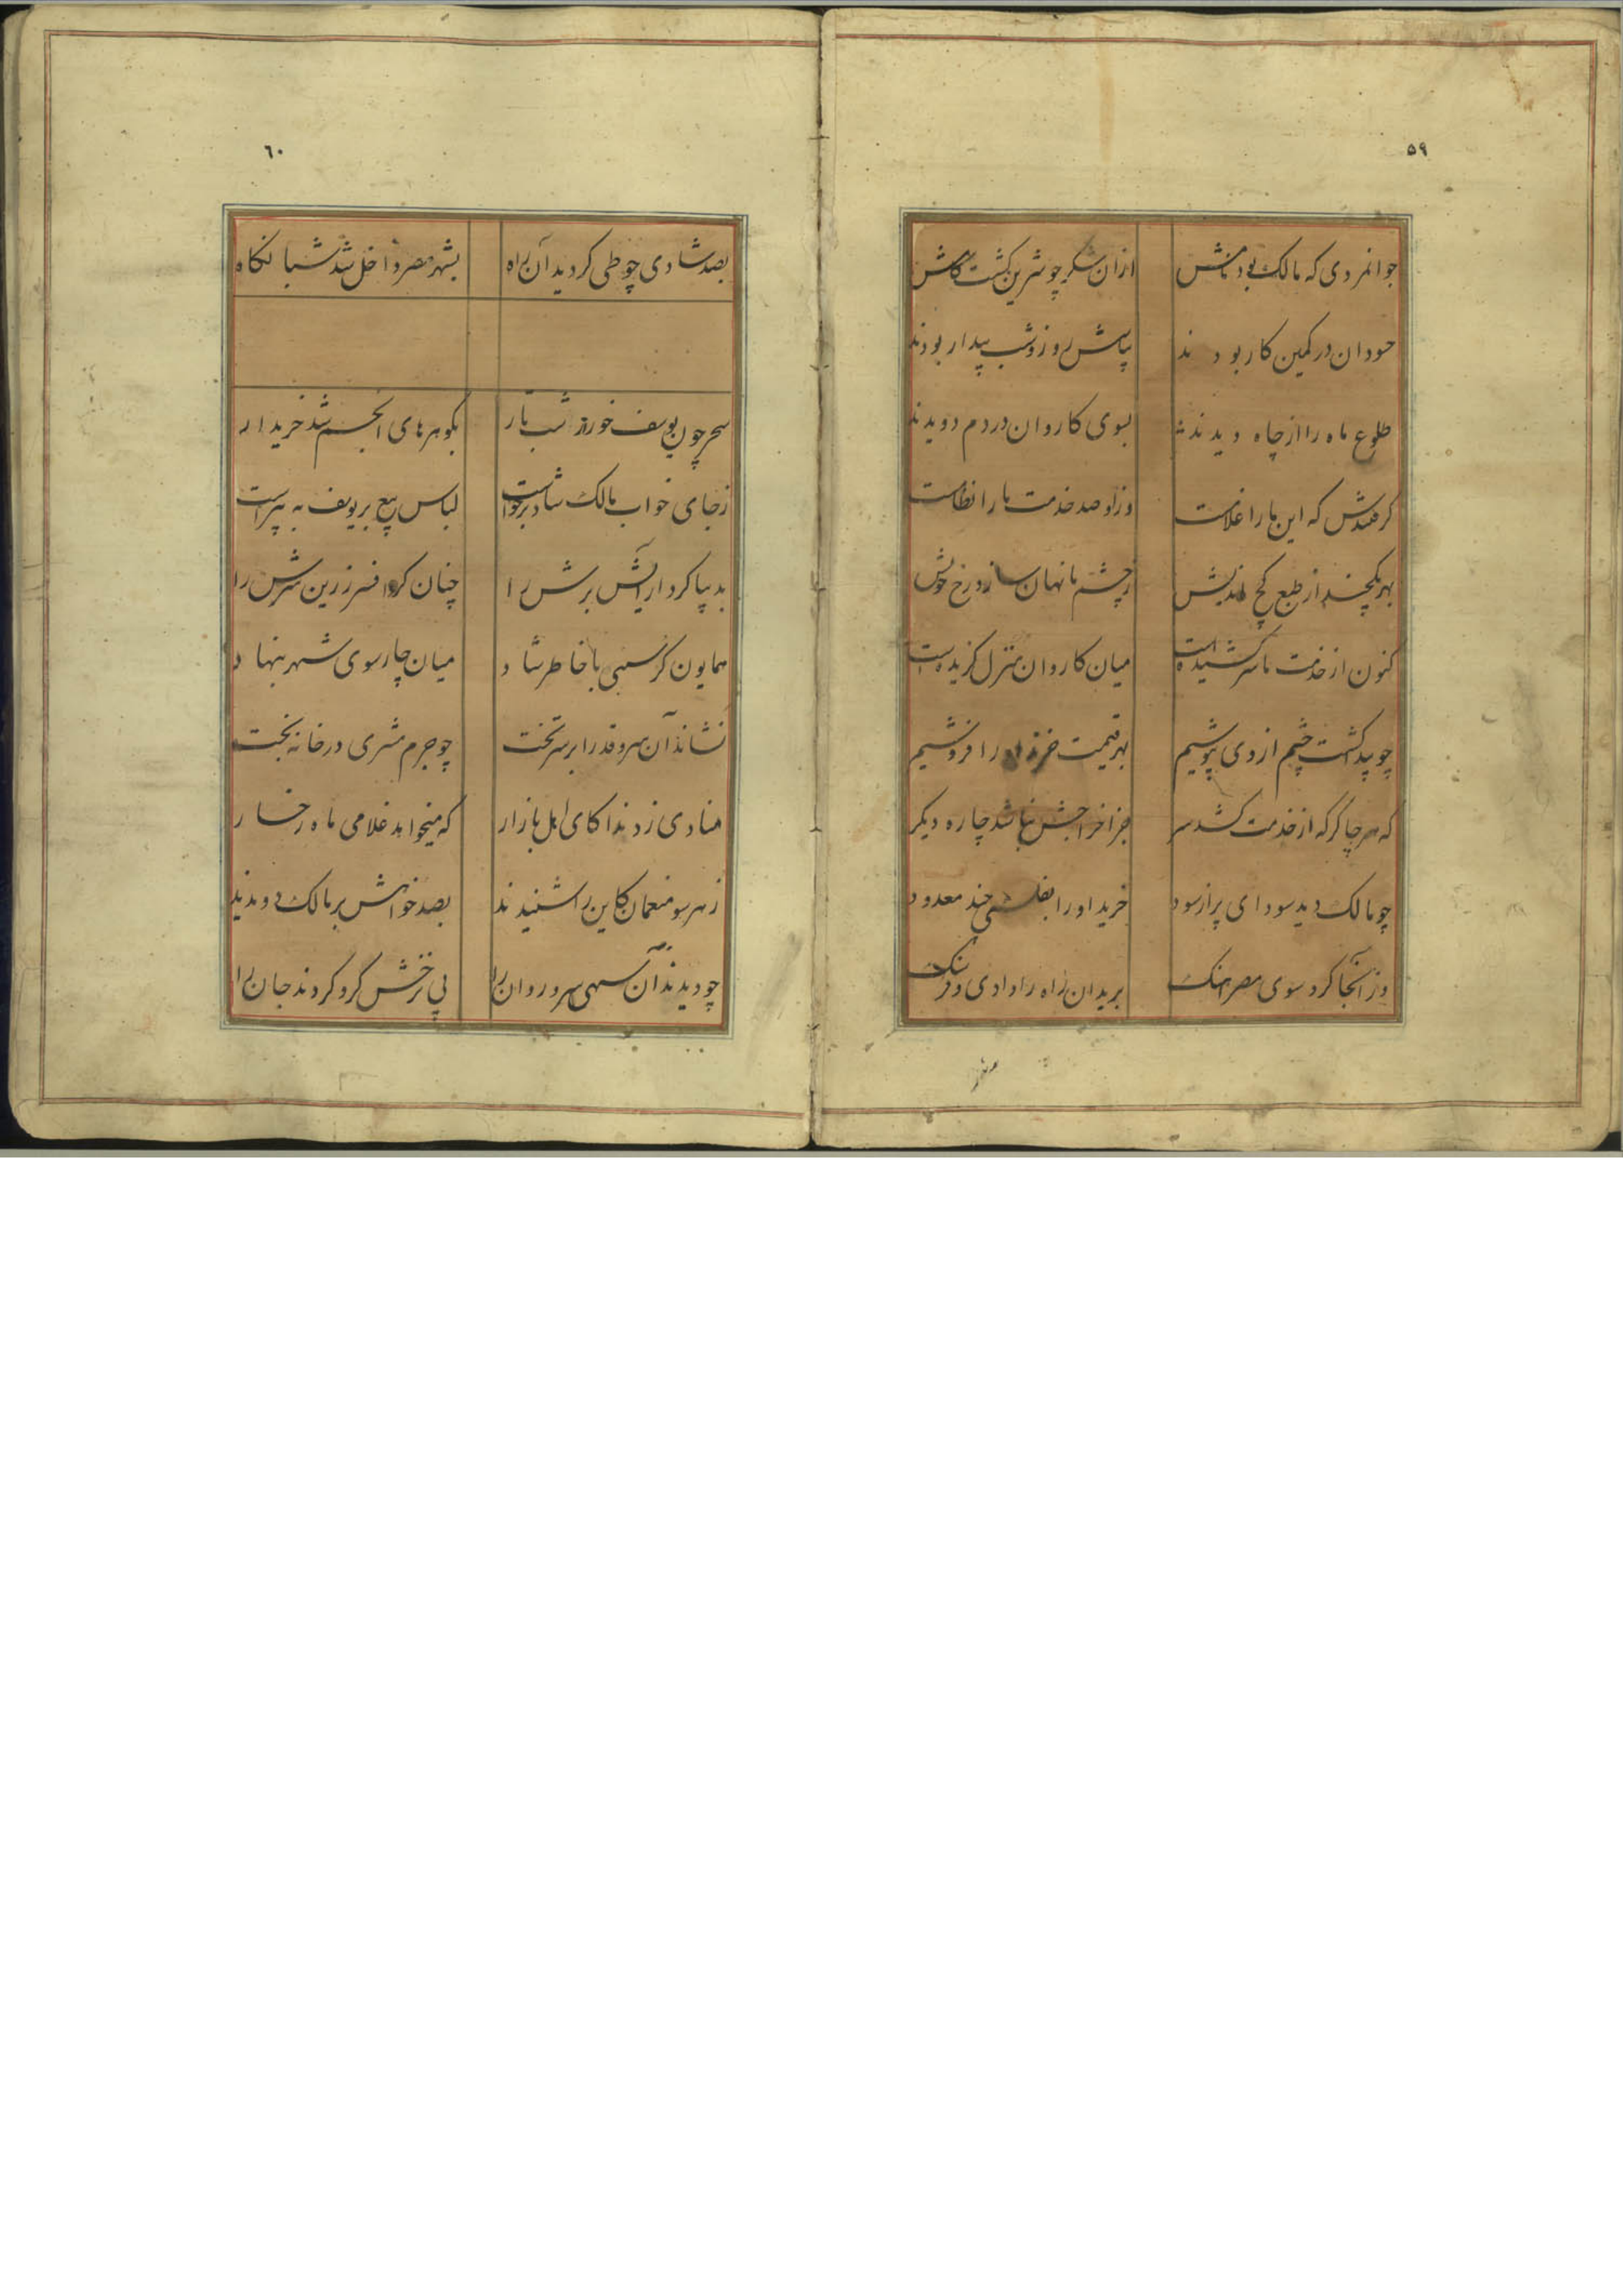 ٥٩
جوانمردی که مالک بود نامش ازان شکر چو شیرین گشت کامش
حسودان در کمین کار بودند بپاسش روز و شب بیدار بودند
طلوع ماه را از چاه دیدند بسوی کاروان در دم دویدند
گرفتندش که این ما را غلامست وزو صد خدمت ما را نظامست
بهر یکچند از طبع کج اندیش ز چشم ما نهان سازد رخ خویش
کنون از خدمت ما سر کشیده است میان کاروان منزل گزیده است
چو پید گشت چشم از وی بپوشیم بهر قیمت خرند او را فروشیم
که هر چاکر که از خدمت کشد سر جز اخراجش نباشد چاره دیگر
چو مالک دید سودای پر از سود خرید او را بفلسی چند معدود
وز آنجا کرد سوی مصر آهنگ برید آن راه را وادی و فرسنگ
٦٠
بصد شادی چو طی کردید آن راه بشهر مصر داخل شد شبانگاه
سحر چون یوسف خور از شب تار بگوهرهای انجم شد خریدار
ز جای خواب مالک شاد برخواست لباس بیع بر یوسف به پیراست
بدیبا کرد آرایش برش را چنان کز افسر زرین سرش را
همایون کرسیی با خاطر شاد میان چارسوی شهر بنهاد
نشاند آن سرو قد را بر سر تخت چو جرم مشتری در خانه بخت
منادی زد ندا کای اهل بازار که میخواهد غلامی ماه رخسار
ز هر سو منعمان کاین را شنیدند بصد خواهش بر مالک دویدند
چو دیدند آن سهی سرو روان را پی نرخش گرو کردند جان را